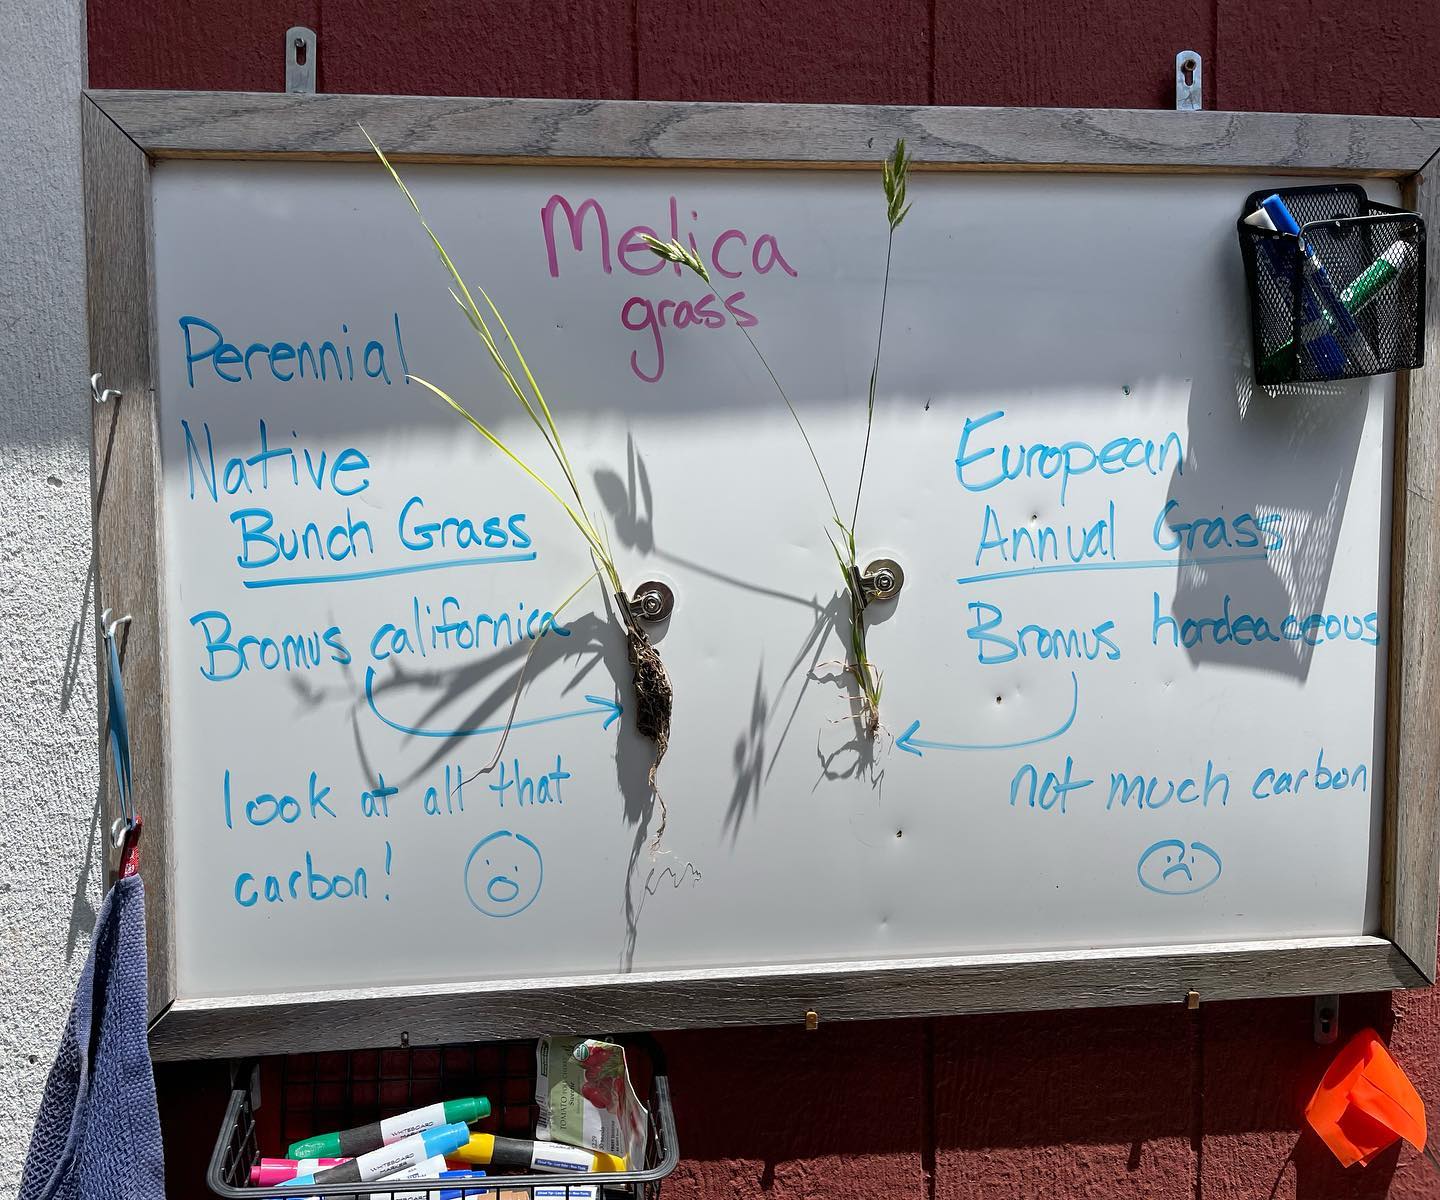 Melica
grass
Perennial
Native
Bunch Grass
Bromus californica
look at all that
carbon!
European
Annual Grass
Bromus hordeaceous
not much carbon
TOMATO
WHITEBOARD
MARKER
WHITEBOARD
MARKER